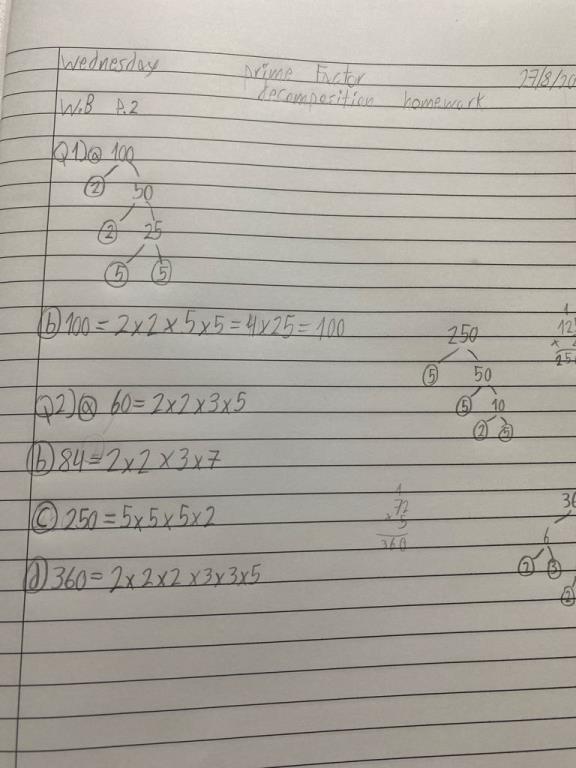 Wednesday
prime Factor
decomposition homework
27/8/20
W.B P.2
Q1) a 100
2 50
2 25
5 5
b 100 = 2 x 2 x 5 x 5 = 4 x 25 = 100
250
5 50
5 10
2 5
1
12
x
25
Q2) a 60 = 2 x 2 x 3 x 5
b 84 = 2 x 2 x 3 x 7
c 250 = 5 x 5 x 5 x 2
1
72
x 5
360
d 360 = 2 x 2 x 2 x 3 x 3 x 5
36
6
2 3
2